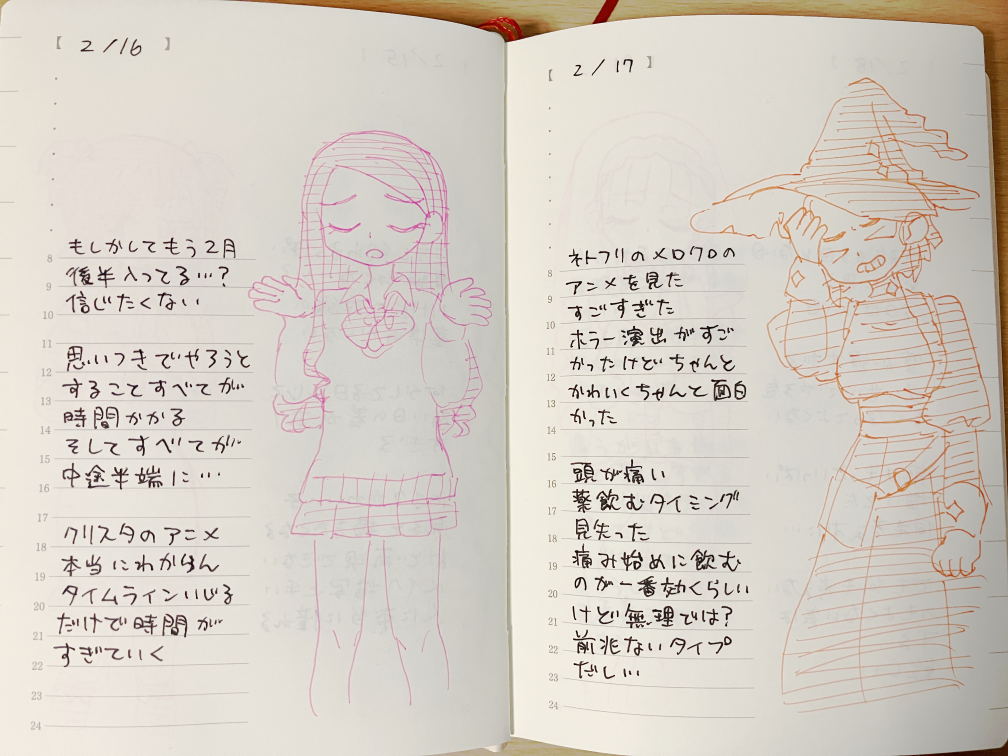 【 2/16 】
もしかしてもう2月
後半入ってる…?
信じたくない
思いつきでやろうと
することすべてが
時間かかる
そしてすべてが
中途半端に…
クリスタのアニメ
本当にわからん
タイムラインいじる
だけで時間が
すぎていく
8
9
10
11
12
13
14
15
16
17
18
19
20
21
22
23
24
【 2/17 】
ネトフリのメロクロの
アニメを見た
すごすぎた
ホラー演出がすご
かったけどちゃんと
かわいくちゃんと面白
かった
頭が痛い
薬飲むタイミング
見失った
痛み始めに飲む
のが一番効くらしい
けど無理では?
前兆ないタイプ
だし…
8
9
10
11
12
13
14
15
16
17
18
19
20
21
22
23
24